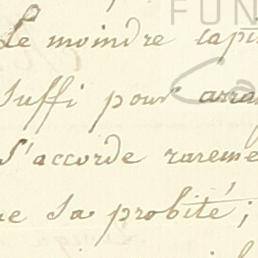 FUN
Le moindre capi
suffi pour arra
S'accorde rareme
ue sa probité;